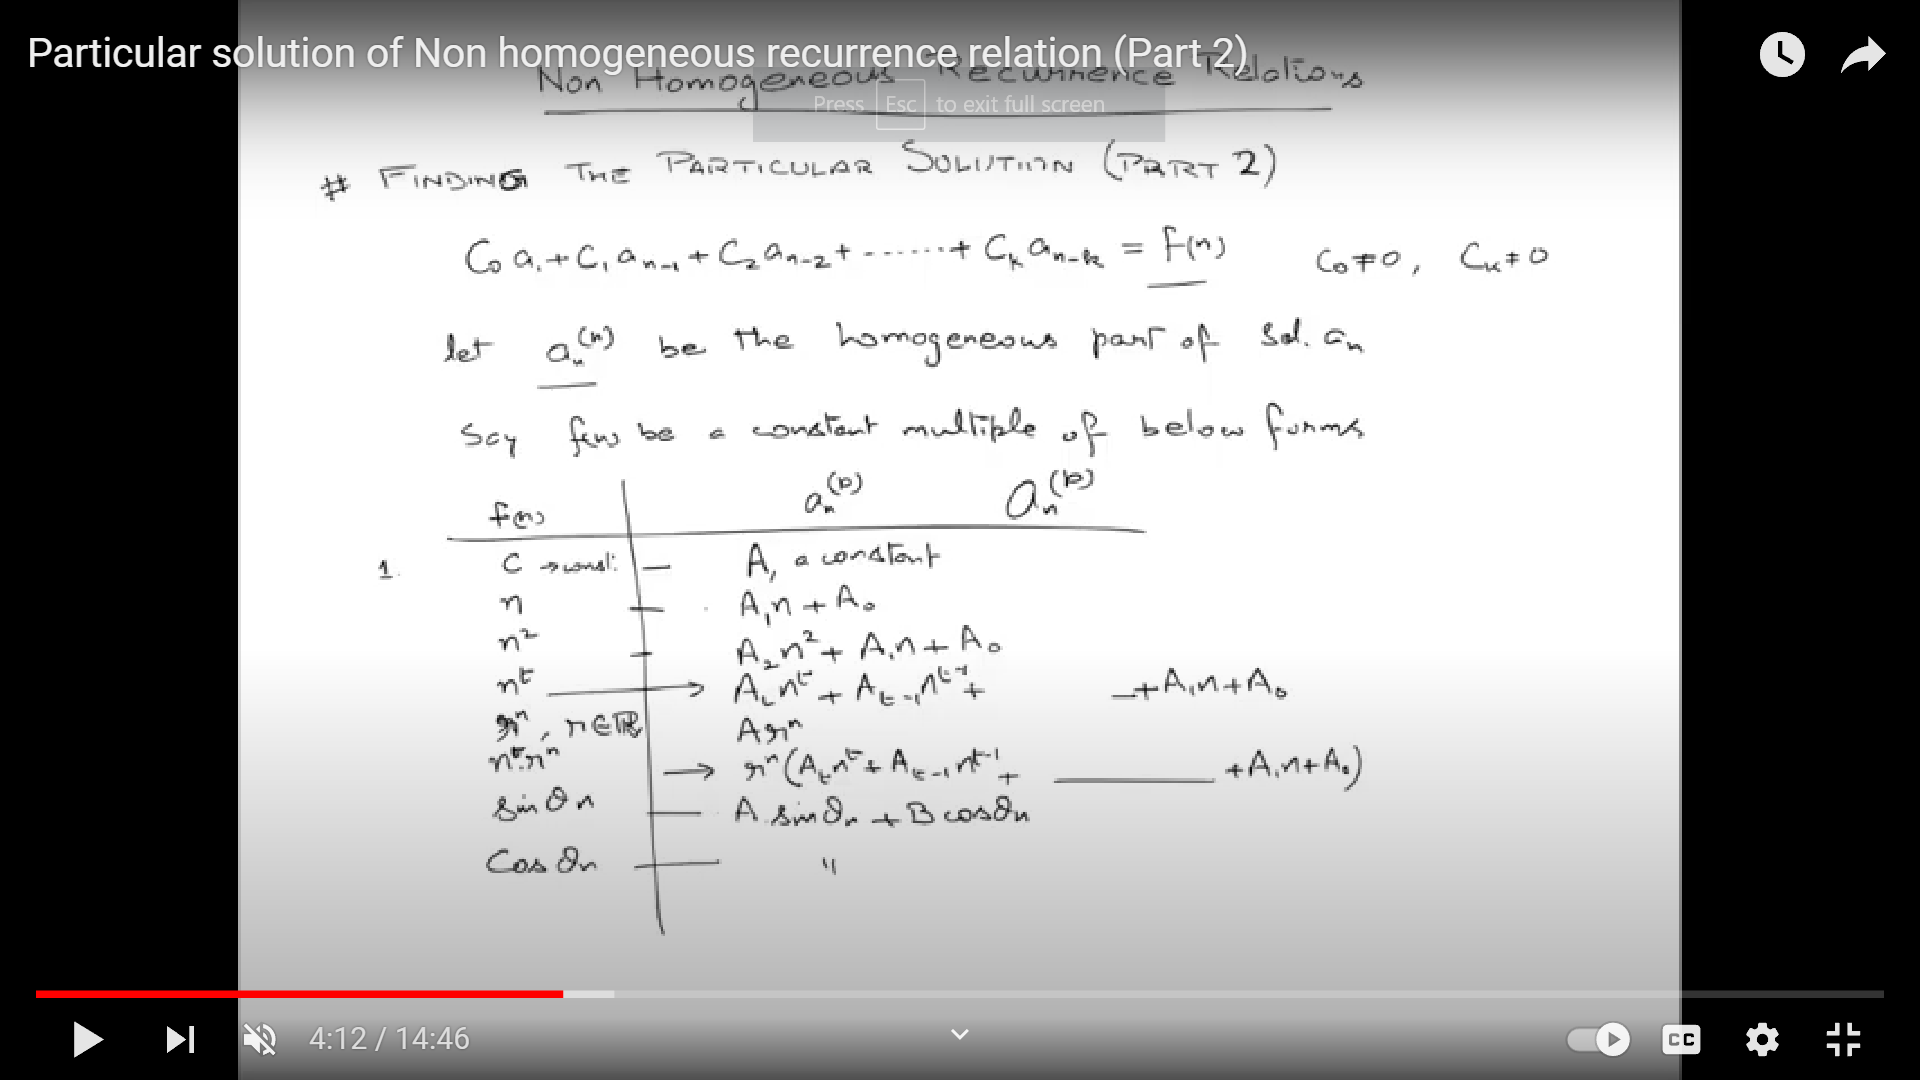 Particular solution of Non homogeneous recurrence relation (Part 2)
Non Homogeneous Recurrence Relations
Press Esc to exit full screen
# FINDING THE PARTICULAR SOLUTION (PART 2)
C₀ aₙ + C₁ aₙ₋₁ + C₂ aₙ₋₂ + ....... + Cₖ aₙ₋ₖ = f(n) C₀ ≠ 0, Cₖ ≠ 0
let aₙ⁽ʰ⁾ be the homogeneous part of sol. aₙ
Say f(n) be a constant multiple of below forms
f(n) aₙ⁽ᵖ⁾ aₙ⁽ᵖ⁾
1. C → const: — A, a constant
n — A₁n + A₀
n² — A₂n² + A₁n + A₀
nᵗ → Aₜnᵗ + Aₜ₋₁nᵗ⁻¹ + — + A₁n + A₀
rⁿ, r∈ℝ Arⁿ
nᵗ.rⁿ → rⁿ(Aₜnᵗ + Aₜ₋₁nᵗ⁻¹ + ——— + A₁n + A₀)
sin θn — A sin θn + B cos θn
Cos θn — "
4:12 / 14:46
CC